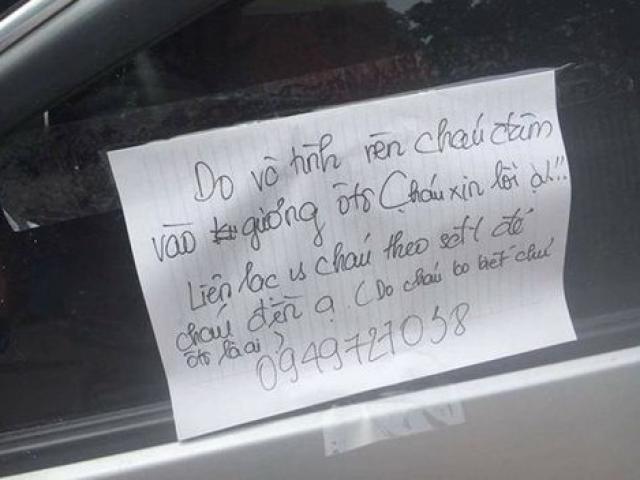 Do vô tình nên cháu đâm
vào gương ôtô (cháu xin lỗi ạ!!..
Liên lạc vs cháu theo sđt để
cháu đền ạ. (Do cháu ko biết chủ
ôtô là ai)
0949727058